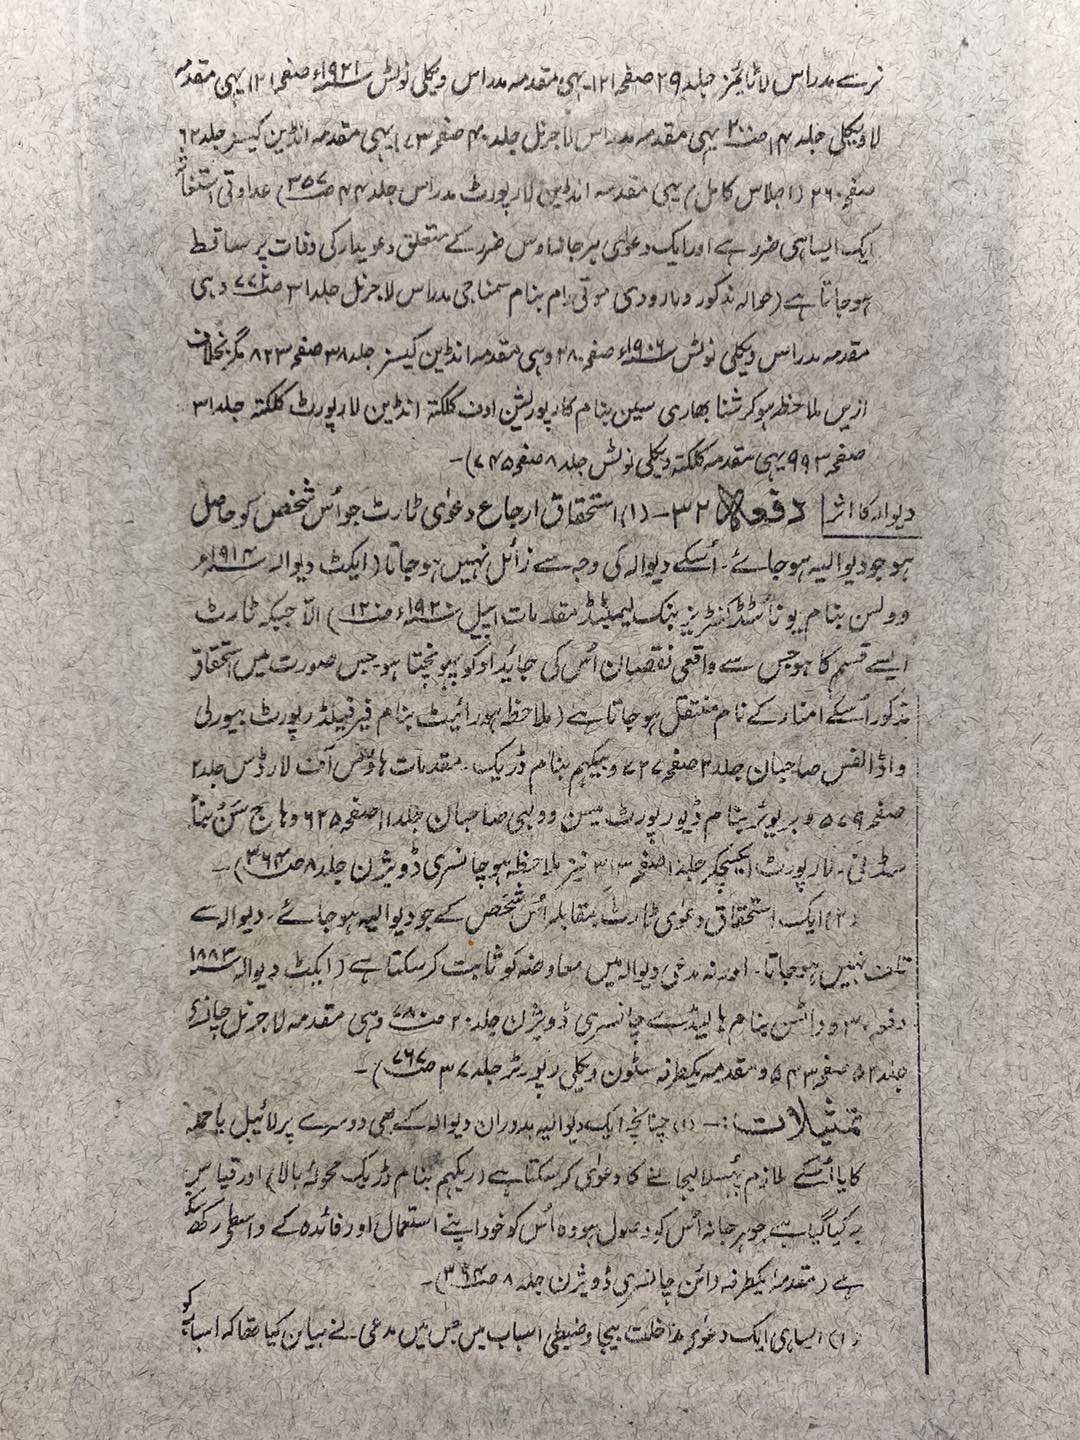 نرسے مدراس لا ٹائمز جلد ۲۹ صفحہ ۱۲۱۔ یہی مقدمہ مدراس ویکلی نوٹس سنہ ۱۹۲۱ء صفحہ ۱۲۱) یہی مقدمہ
لا ویکلی جلد ۱۴ صفحہ ۲۰۰ یہی مقدمہ مدراس لا جرنل جلد ۴۰ صفحہ ۱۷۳) یہی مقدمہ انڈین کیسز جلد ۶۲
صفحہ ۲۶۰ (اجلاس کامل) یہی مقدمہ انڈین لا رپورٹ مدراس جلد ۴۴ صفحہ ۳۵۷) عداوتی استغاثہ
ایک ایسا ہی ضرر ہے اور ایک دعویٰ ہرجانہ اوس ضرر کے متعلق دعویدار کی وفات پر ساقط
ہوجاتا ہے (حوالہ مذکور و مارودی موتی رام بنام سمناجی مدراس لا جرنل جلد ۳۱ صفحہ ۷۷۲ وہی
مقدمہ مدراس ویکلی نوٹس سنہ ۱۹۰۶ء صفحہ ۲۸۰ وہی مقدمہ انڈین کیسز جلد ۳۸ صفحہ ۸۲۳ مگر بخلاف
ازیں ملاحظہ ہو کرشنا بھاری سین بنام کارپوریشن اوف کلکتہ انڈین لا رپورٹ کلکتہ جلد ۳۱
صفحہ ۹۹۳ یہی مقدمہ کلکتہ ویکلی نوٹس جلد ۸ صفحہ ۷۴۵)۔
دیوالہ کا اثر دفعہ ۳۲۔ (۱) استحقاق ارجاع دعویٰ ٹارٹ جو اُس شخص کو حاصل
ہو جو دیوالیہ ہوجائے۔ اُسکے دیوالہ کی وجہ سے زائل نہیں ہوجاتا (ایکٹ دیوالہ سنہ ۱۹۱۴ء
و ولسن بنام یونائٹڈ کنٹریز بنک لیمیٹڈ مقدمات اپیل سنہ ۱۹۲۰ء صفحہ ۱۲) الاّ جبکہ ٹارٹ
ایسے قسم کا ہو جس سے واقعی نقصان اُس کی جائیداد کو پہونچتا ہو جس صورت میں استحقاق
مذکور اُسکے امناء کے نام منتقل ہوجاتا ہے (ملاحظہ ہو رائیٹ بنام فیرفیلڈ رپورٹ بیورلی
و اڈالفس صاحبان جلد ۲ صفحہ ۷۲۷ و بیکہم بنام ڈریک۔ مقدمات ہاؤس آف لارڈس جلد ۲
صفحہ ۵۷۹ و بریوئر بنام ڈیور رپورٹ میسن و ولبی صاحبان جلد ۱۱ صفحہ ۶۲۵ و ہاج سَن بنام
سڈنی۔ لا رپورٹ ایکسچکر جلد ۱ صفحہ ۳۱۳ نیز ملاحظہ ہو چانسری ڈویژن جلد ۸ صفحہ ۳۶۴)۔
(۲) ایک استحقاق دعویٰ ٹارٹ بمقابلہ اُس شخص کے جو دیوالیہ ہوجائے۔ دیوالہ سے
تلف نہیں ہوجاتا۔ اور نہ مدعی دیوالہ میں معاوضہ کو ثابت کرسکتا ہے (ایکٹ دیوالہ سنہ ۱۸۸۳
دفعہ ۳۰ و واٹسن بنام ہالیڈے چانسری ڈویژن جلد ۲۰ صفحہ ۷۸۰ وہی مقدمہ لا جرنل چانسری
جلد ۵۲ صفحہ ۵۴۳ و مقدمہ یکطرفہ سٹون ویکلی رپورٹر جلد ۳۷ صفحہ ۷۶۷)۔
تمثیلات:۔ (۱) چنانچہ ایک دیوالیہ بدوران دیوالہ کے بھی دوسرے پر لائیبل یا حملہ
کا یا اُسکے ملازم پھسلا لیجانے کا دعویٰ کرسکتا ہے (بیکہم بنام ڈریک محولہ بالا) اور قیاس یہ
کیا گیا ہے جو ہرجانہ اُس کو وصول ہو وہ اُس کو خود اپنے استعمال اور فائدہ کے واسطے رکھ سکتا
ہے (مقدمہ یکطرفہ وائن چانسری ڈویژن جلد ۸ صفحہ ۳۶۴)۔
(۲) ایسا ہی ایک دعویٰ مداخلت بیجا و ضبطی اسباب میں جس میں مدعی نے بیان کیا تھا کہ اسباب کو